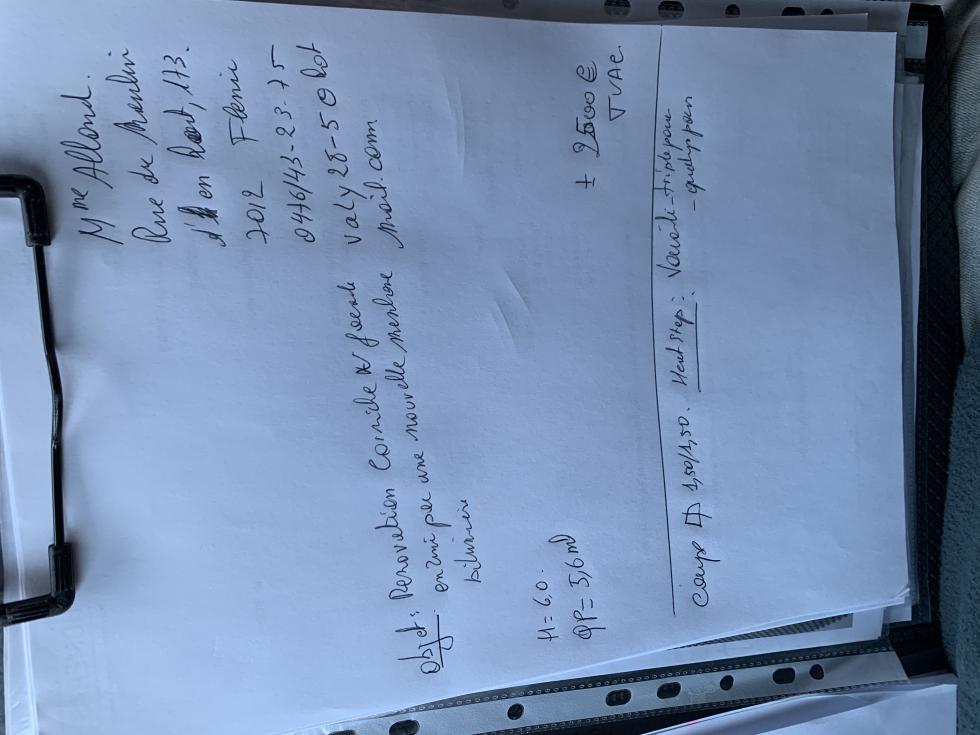 Mme Allond.
Rue du Moulin
d'en Haut, 173.
7012 Flénu
0476/43-23-75
valy 28-5 @ hot
mail.com
Objet: Renovation Corniche façade
en zinc par une nouvelle membrane
bitumineuse
H = 6,0.
QP = 5,6 m
± 2500 €
TVAC.
Coupe 1,50/1,50. Heat Step: Vérandi - triple paroi